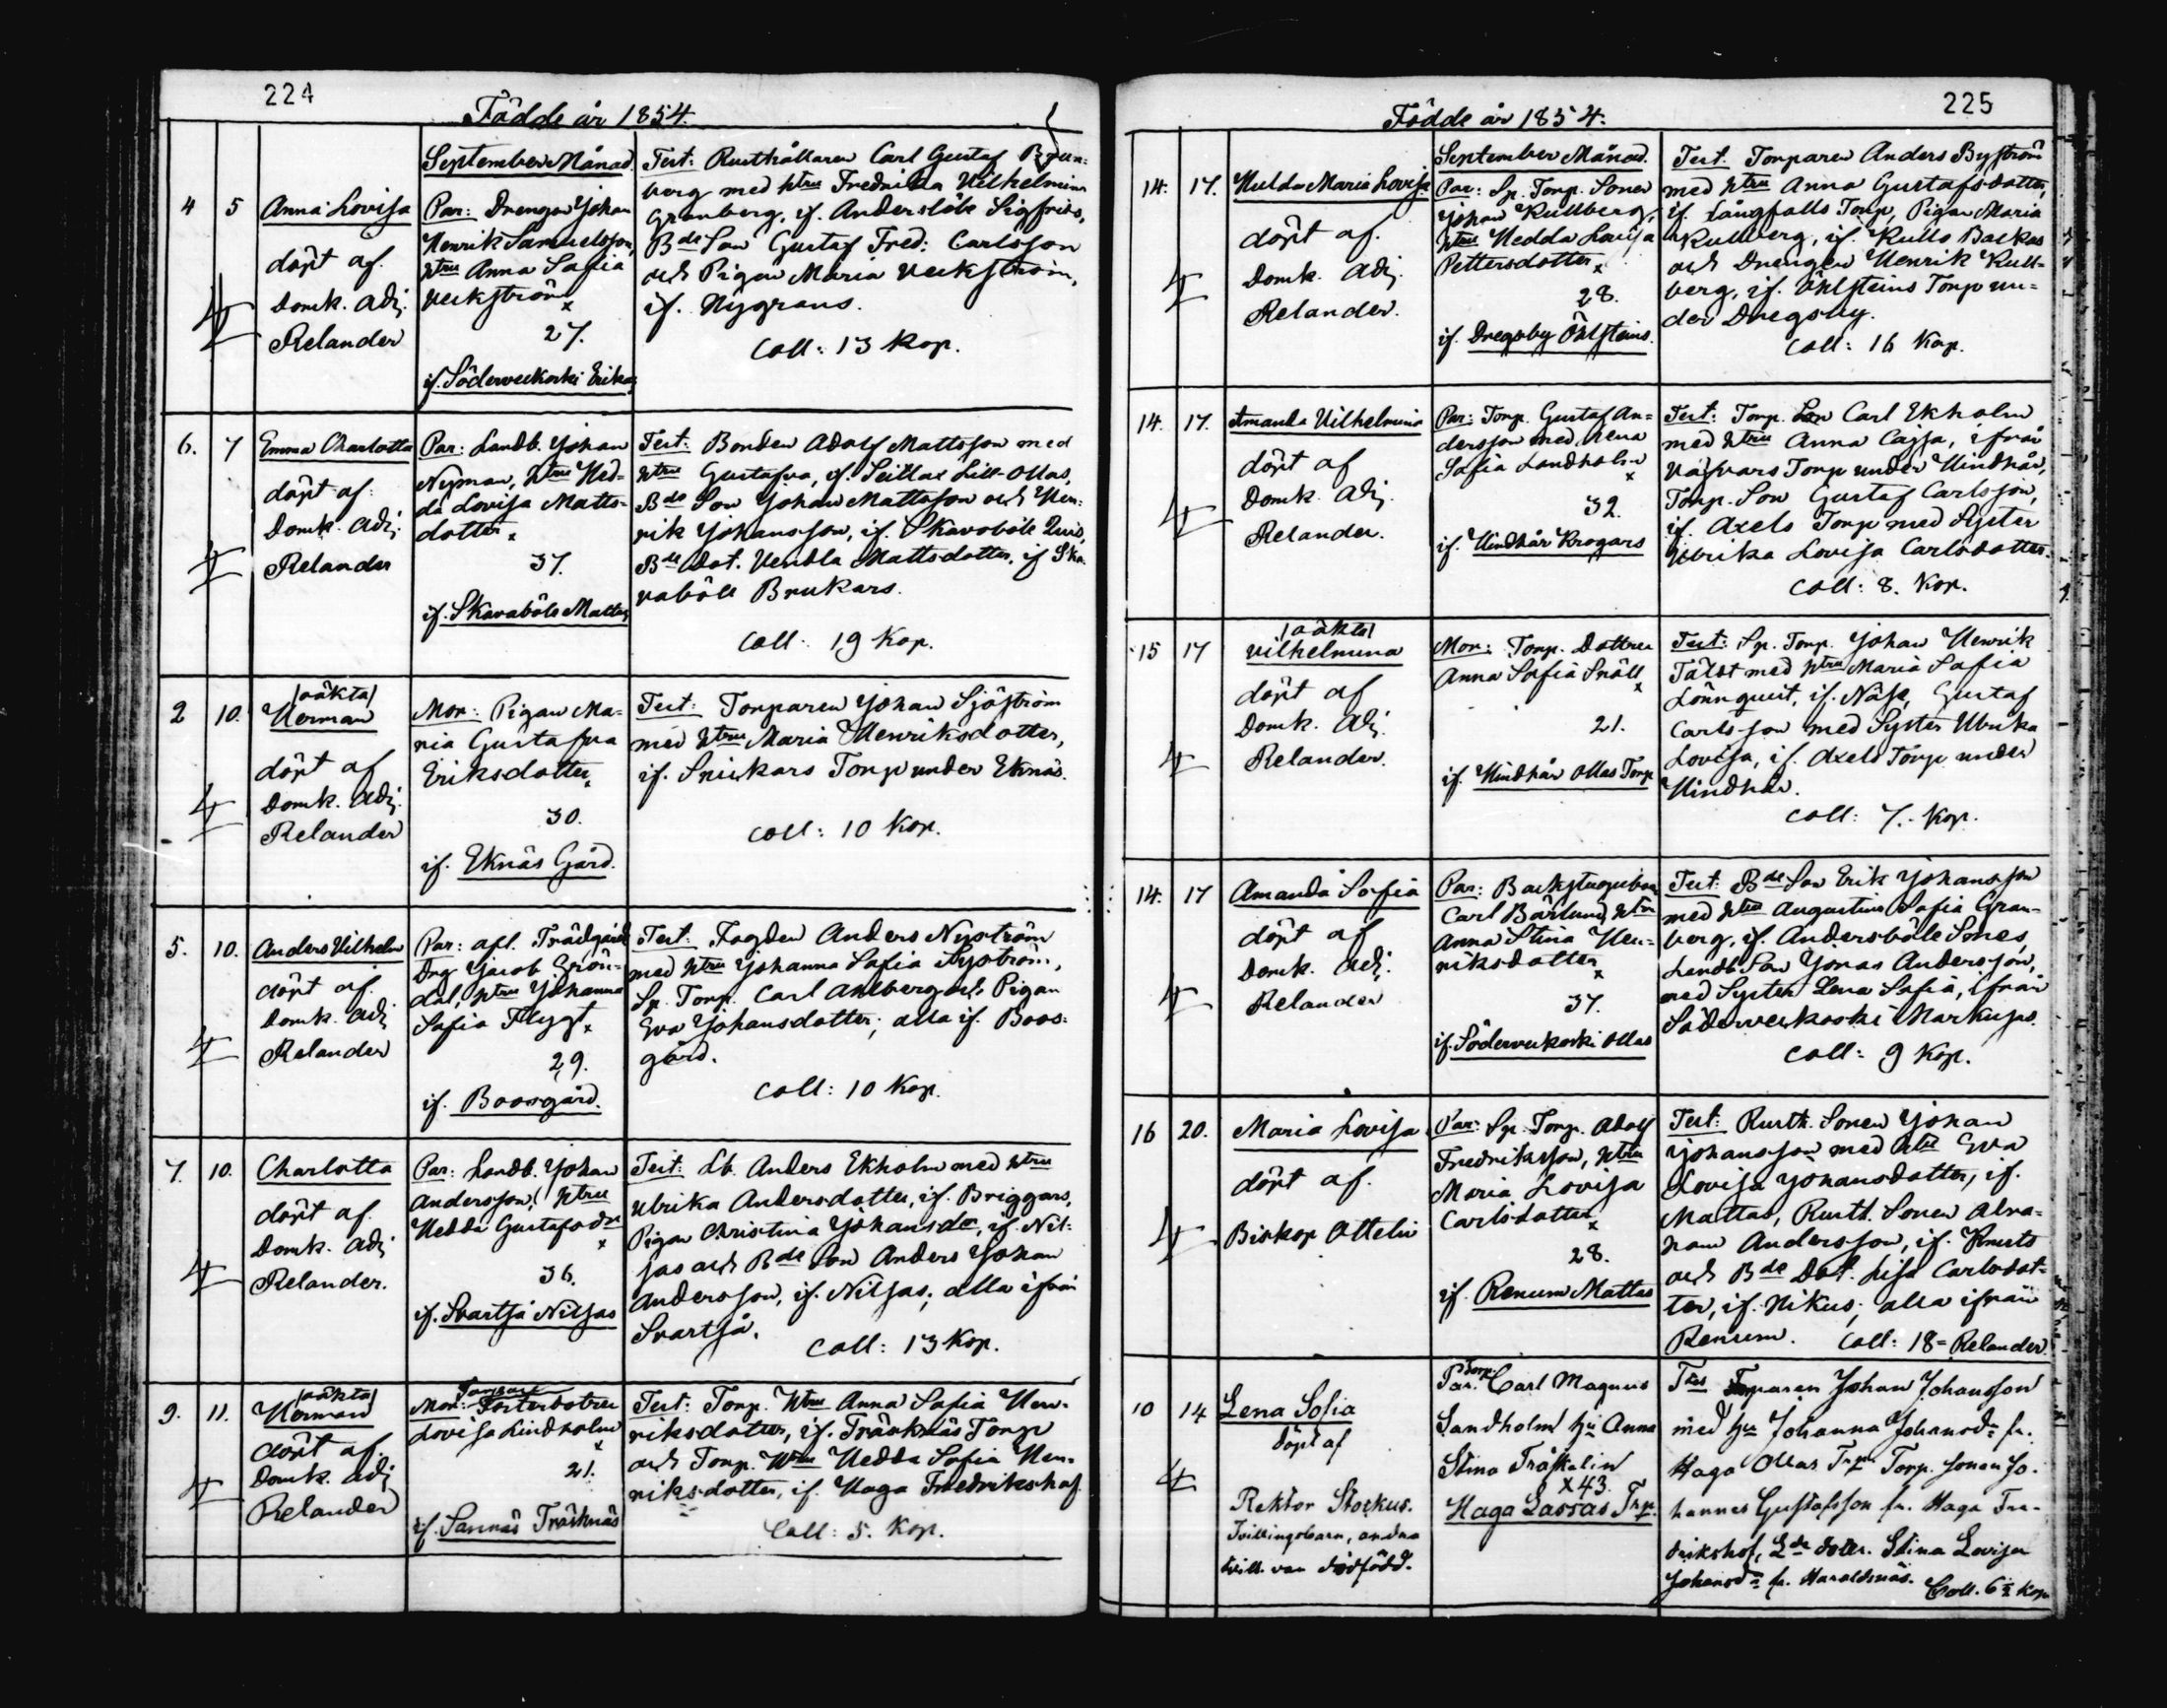 224
Födde år 1854.
September Månad.
4 5 Anna Lovisa
döpt af.
Domk. Adj.
Relander
Par: Drengen Johan
Henrik Samuelsson,
htru Anna Sofia
Veckström x
27.
if. Söderveckoski Erikas
Test: Rusthållaren Carl Gustaf Brun-
berg med htru Fredrika Vilhelmina
Granberg, if. Andersböle Sigfrids,
Bde Son Gustaf Fred: Carlsson
och Pigan Maria Veckström,
if. Nygrans.
Coll: 13 Kop.
6. 7 Emma Charlotta
döpt af.
Domk. Adj.
Relander
Par: Landb. Johan
Nyman, htru Hed-
da Lovisa Matts-
dotter x
37.
if. Skavaböle Mattas
Test: Bonden Adolf Mattsson med
htru Gustafva, if. Seitlax Lill-Ollas,
Bde Son Johan Mattsson och Hen-
rik Johansson, if. Skavaböle
Bde Dot. Vendla Mattsdotter, if Ska-
vaböle Brukars.
Coll: 19 Kop.
2 10. /oäkta/
Herman
döpt af
Domk. Adj.
Relander
Mor: Pigan Ma-
ria Gustafva
Eriksdotter x
30.
if. Eknäs Gård.
Test: Torparen Johan Sjöström
med htru Maria Henriksdotter,
if. Snickars Torp under Eknäs.
Coll: 10 Kop.
5. 10. Anders Vilhelm
döpt af.
Domk. Adj
Relander
Par: afl. Trädgård
Drg Jacob Grön-
dal, htru Johanna
Sofia Flygt x
29.
if. Boosgård.
Test: Fogden Anders Nyström
med htru Johanna Sofia Nyström,
Sp. Torp. Carl Ahlberg och Pigan
Eva Johansdotter; alla if. Boos-
gård.
Coll: 10 Kop.
7. 10. Charlotta
döpt af.
Domk. Adj
Relander.
Par: Landb. Johan
Andersson, htru
Hedda Gustafsdr
x
36.
if. Svartså Nissas
Test: Lb. Anders Ekholm med htru
Ulrika Andersdotter, if. Briggars,
Pigan Christina Johansdr, if. Nil-
sas och Bde Son Anders Johan
Andersson, if. Nilsas; alla ifrån
Svartså.
Coll: 13 Kop.
9. 11. /oäkta/
Herman
döpt af.
Domk. Adj
Relander
Mor: Fosterdotren
Lovisa Lindholm
x
21.
if. Sannäs Träsknäs
Test: Torp. Htru Anna Sofia Hen-
riksdotter, if. Träsknäs Torp
och Torp. Htru Hedda Sofia Hen-
riksdotter, if. Haga Fredrikshof.
Coll: 5. Kop.
225
Födde år 1854.
September Månad.
14. 17. Hulda Maria Lovisa
döpt af.
Domk. Adj.
Relander.
Par: Sp. Torp. Sonen
Johan Kullberg,
htru Hedda Lovisa
Pettersdotter x
28.
if. Dregsby Öhlsteins.
Test. Torparen Anders Byström
med htru Anna Gustafsdotter,
if. Långfalls Torp, Pigan Maria
Kullberg, if. Kullo Backas
och Drengen Henrik Kull-
berg, if. Öhlsteins Torp un-
der Dregsby.
Coll: 16 Kop.
14. 17. Amanda Vilhelmina
döpt af
Domk. Adj.
Relander.
Par: Torp. Gustaf An-
dersson med Lena
Sofia Landholm
x
32.
if. Hindhår Krogars
Test: Torp. Son Carl Ekholm
med htru Anna Cajsa, ifrån
Väfvars Torp under Hindhår,
Torp. Son Gustaf Carlsson,
if. Axels Torp med Syster
Ulrika Lovisa Carlsdotter.
Coll: 8. Kop.
15 17 /oäkta/
Vilhelmina
döpt af
Domk. Adj.
Relander.
Mor: Torp. Dottren
Anna Sofia Snäll
x
21.
if. Hindhår Ollas Torp
Test: Sp. Torp. Johan Henrik
Täldt med htru Maria Sofia
Lönnqvist, if. Näse, Gustaf
Carlsson med Syster Ulrika
Lovisa, if. Axels Torp under
Hindhår.
Coll: 7. Kop.
14. 17 Amanda Sofia
döpt af
Domk. Adj.
Relander
Par: Backstugubon
Carl Bärlund, htru
Anna Stina Hen-
riksdotter
x
37.
if. Söderveckoski Ollas
Test: Bde Son Erik Johansson
med htru Augustina Sofia Gran-
berg, if. Andersböle Smes,
Landb. Son Jonas Andersson,
med Syster Lena Sofia, ifrån
Söderveckoski Markusas.
Coll: 9 Kop.
16 20. Maria Lovisa
döpt af.
Biskop Ottelin
Par: Sp. Torp. Adolf
Fredriksson, htru
Maria Lovisa
Carlsdotter x
28.
if. Renum Mattas
Test: Rusth. Sonen Johan
Johansson med htru Eva
Lovisa Johansdotter, if.
Mattas, Rusth. Sonen Abra-
ham Andersson, if. Knuts
och Bde Dot. Lisa Carlsdot-
ter, if. Nikus; alla ifrån
Renum. Coll: 18 = Relander.
10 14 Lena Sofia
döpt af
Rektor Storkus.
Tvillingsbarn, andra
tvill. var dödfödd.
Par. Torp. Carl Magnus
Sandholm hu Anna
Stina Träskelin
x 43.
Haga Lassas Trp.
Tes Torparen Johan Johansson
med hu Johanna Johansdr fr.
Haga Ollas Trp Torp. sonen Jo-
hannes Gustafsson fr. Haga Fre-
drikshof, Lde doter. Stina Lovisa
Johansdr fr. Haraldsnäs. Coll. 6½ kop